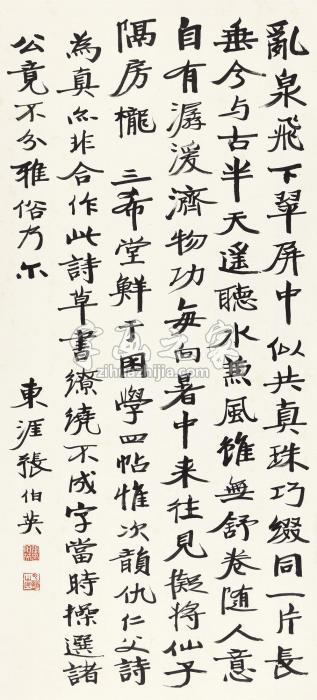 亂泉飛下翠屏中似共真珠巧綴同一片長
垂今与古半天遥聽水兼風雖無舒卷随人意
自有潺湲濟物功每向暑中来往見擬將仙子
隔房櫳 三希堂鮮于困學四帖惟次韻仇仁父詩
為真亦非合作此詩草書繚繞不成字當時操選諸
公竟不分雅俗乃尔
東涯張伯英